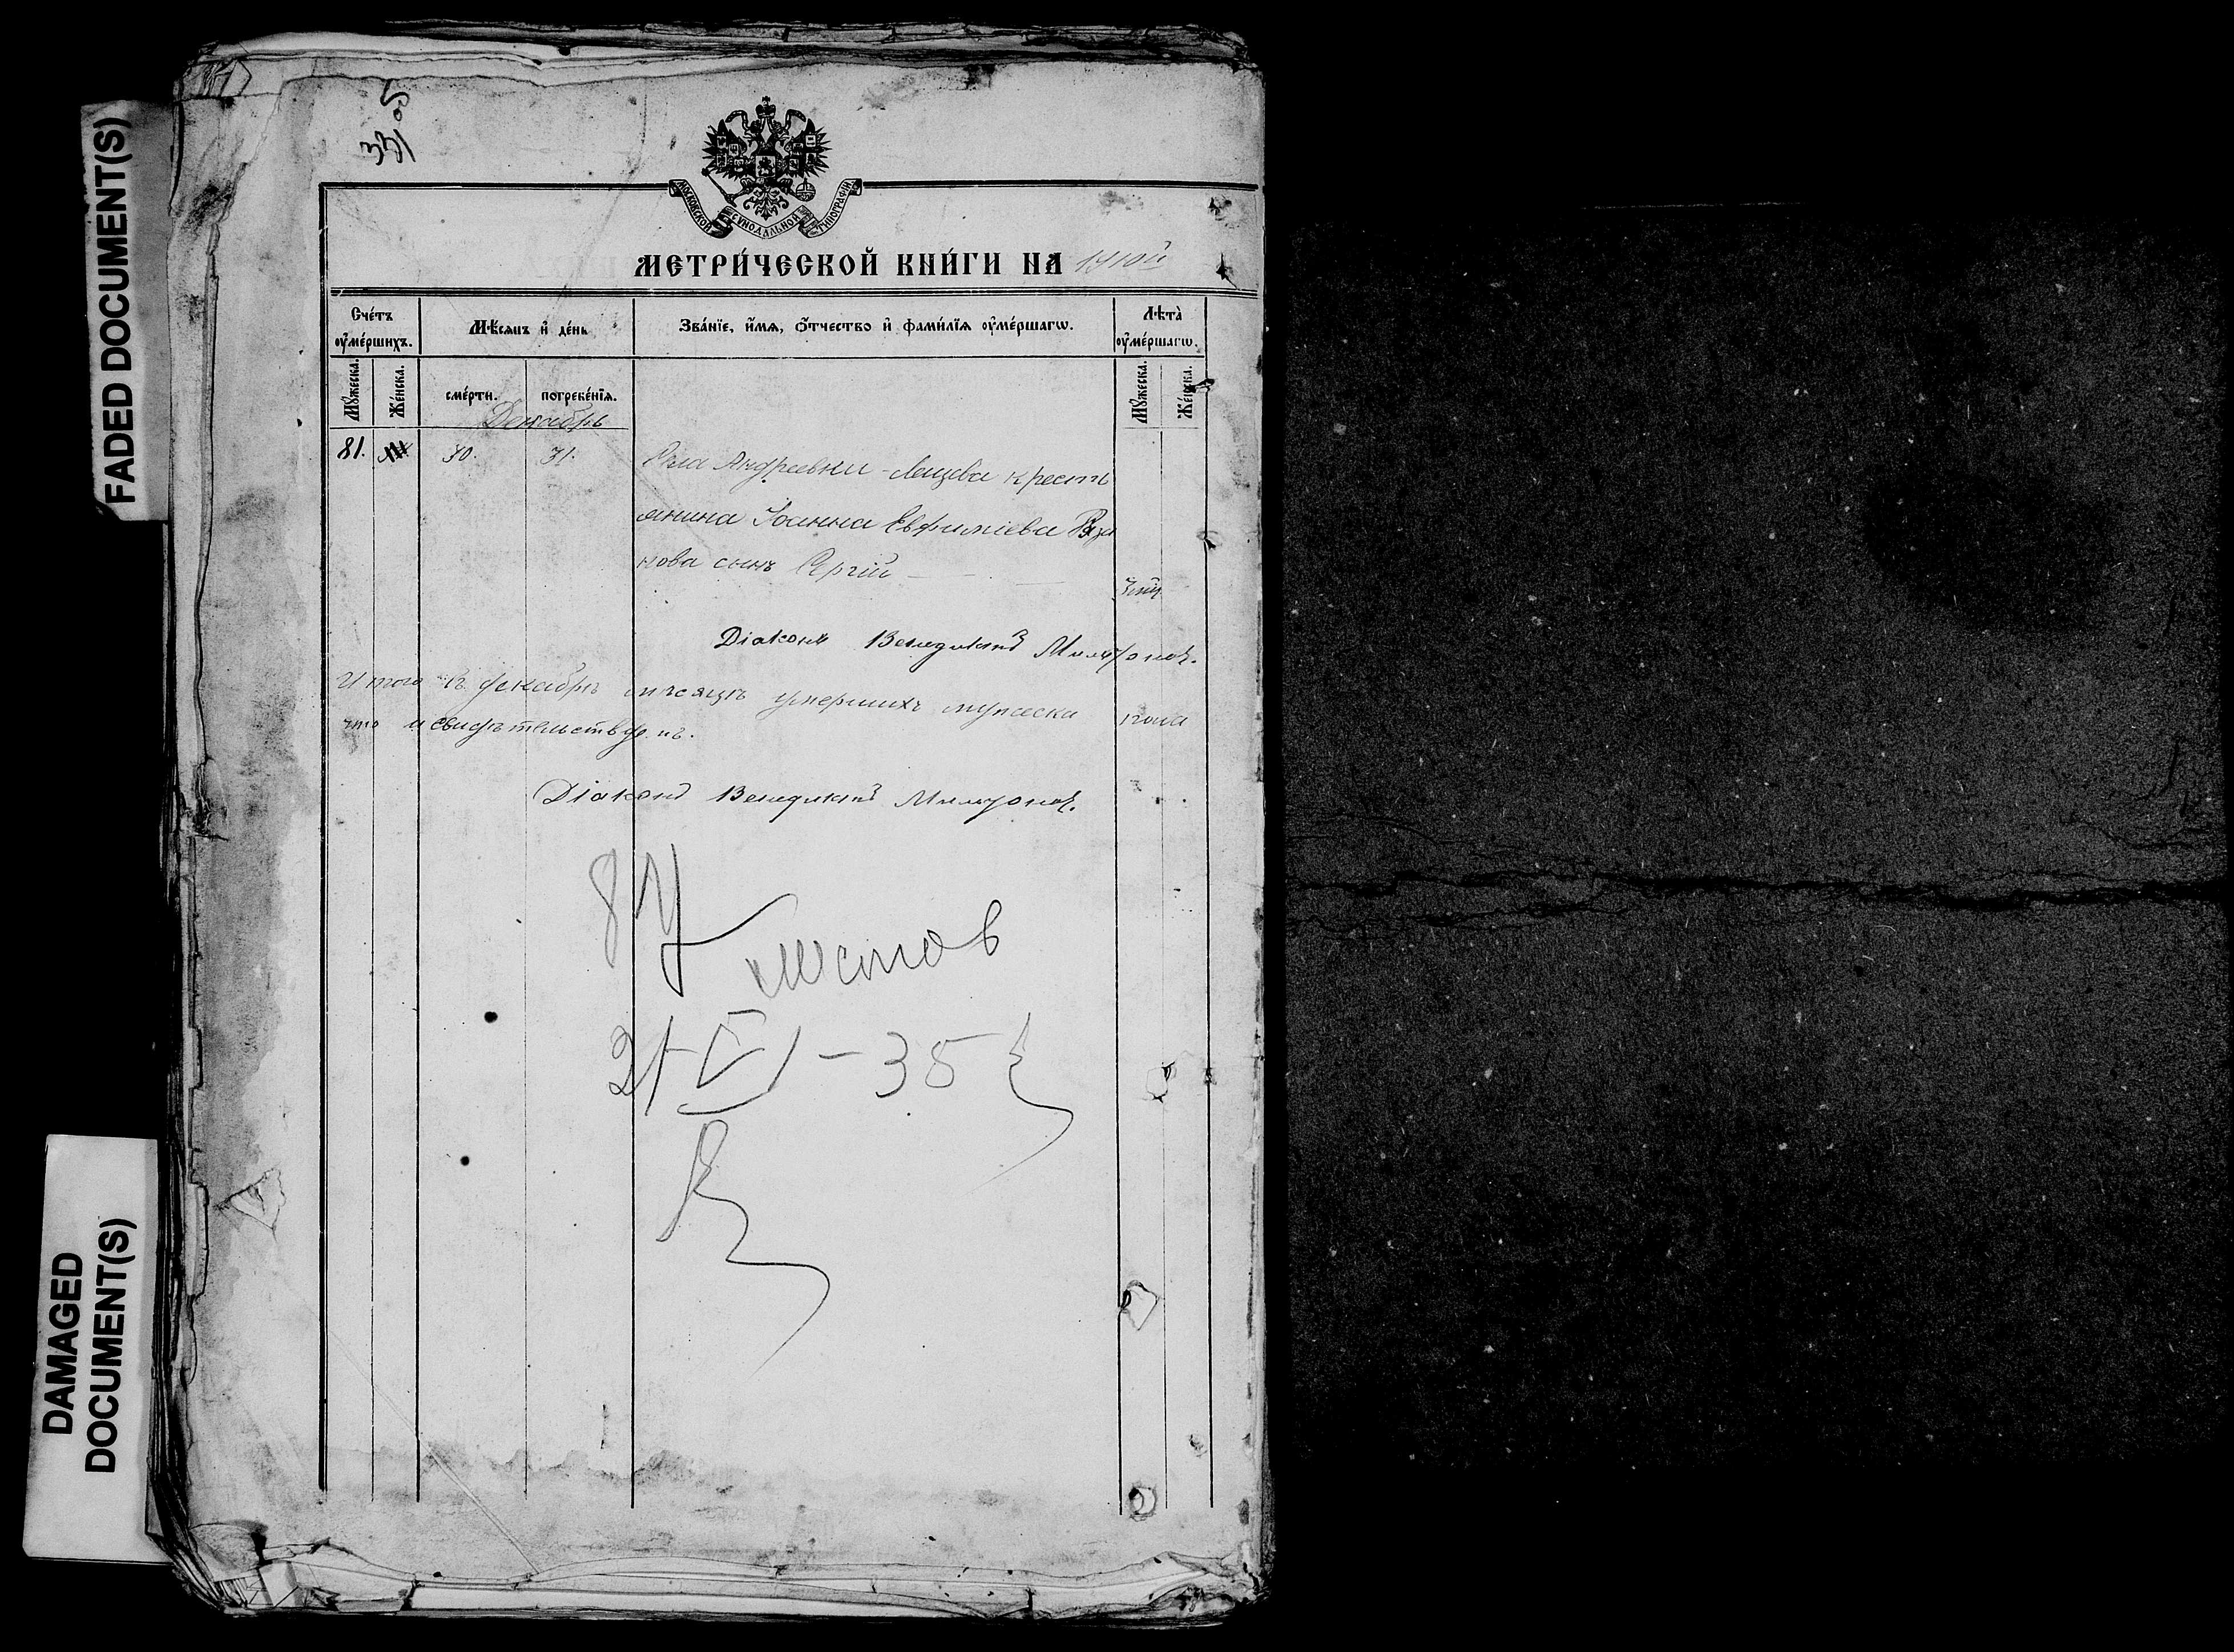 FADED DOCUMENT(S)
DAMAGED
DOCUMENT(S)
331
МОСКОВСКОЙ СѴНОДАЛЬНОЙ ТИПОГРАФІИ
МЕТРИ́ЧЕСКОЙ КНИ́ГИ НА 1910й
Сче́тъ ᲂу҆ме́ршихъ.
Мѣ́сяцъ и҆ де́нь
Зва́нїе, и҆́мѧ, ѻ҆́тчество и҆ фами́лїѧ ᲂу҆ме́ршагѡ.
Лѣта̀ ᲂу҆ме́ршагѡ.
Мꙋ́жеска.
Же́нска.
сме́рти.
погребе́нїѧ.
Мꙋ́жеска.
Же́нска.
Декабрь
81. 30. 31. Села Андреевки кресть
янина Іоанна Евфиміева
нова сынъ Сергій
Діаконъ Венедиктъ
Итого въ декабрѣ мѣсяцѣ умершихъ мужеска пола
что и свидѣтельствуемъ.
Діаконъ Венедиктъ
87
листов
21-VI-35